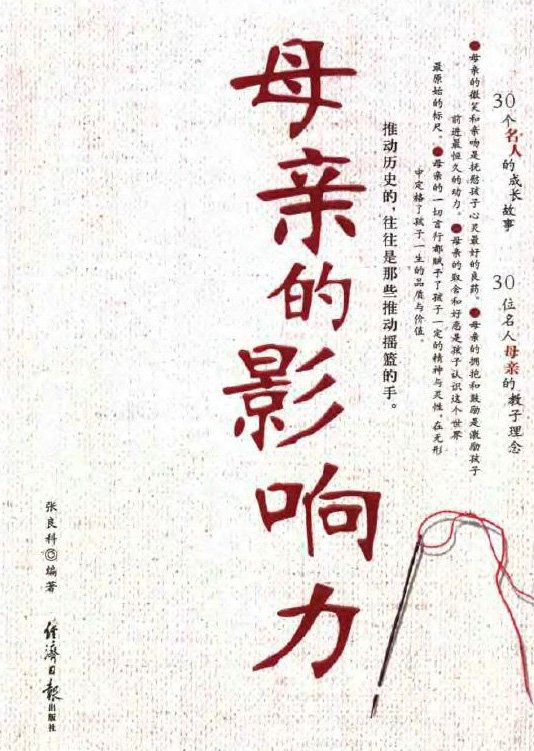 30个名人的成长故事 30位名人母亲的教子理念
●母亲的微笑和亲吻是抚慰孩子心灵最好的良药。●母亲的拥抱和鼓励是激励孩子
前进最恒久的动力。●母亲的取舍和好恶是孩子认识这个世界
最原始的标尺。●母亲的一切言行都赋予了孩子一定的精神与灵性,在无形
中定格了孩子一生的品质与价值。
推动历史的,往往是那些推动摇篮的手。
母亲的影响力
张良科◎编著
經濟日報出版社